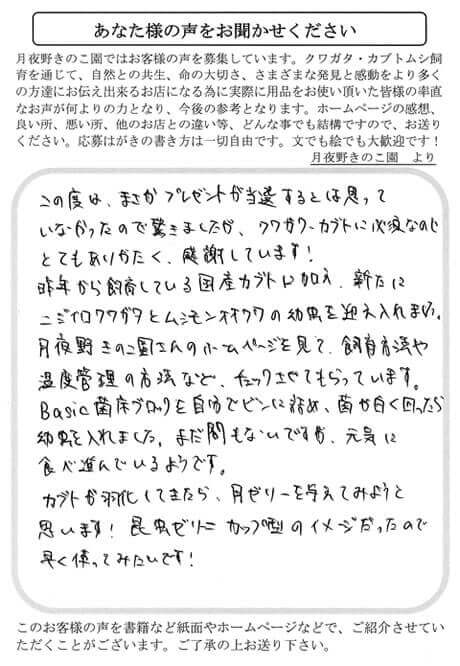 あなた様の声をお聞かせください
月夜野きのこ園ではお客様の声を募集しています。クワガタ・カブトムシ飼
育を通じて、自然との共生、命の大切さ、さまざまな発見と感動をより多く
の方達にお伝え出来るお店になる為に実際に用品をお使い頂いた皆様の率直
なお声が何よりの力となり、今後の参考となります。ホームページの感想、
良い所、悪い所、他のお店との違い等、どんな事でも結構ですので、お送り
ください。応募はがきの書き方は一切自由です。文でも絵でも大歓迎です！
月夜野きのこ園　より
この度は、まさかプレゼントが当選するとは思って
いなかったので驚きましたが、クワガタ・カブトに必須なので
とてもありがたく、感謝しています！
昨年から飼育している国産カブトに加え、新たに
ニジイロクワガタとムシモンオオクワの幼虫を迎え入れました。
月夜野きのこ園さんのホームページを見て、飼育方法や
温度管理の方法など、チェックさせてもらっています。
Basic菌床ブロックを自分でビンに詰め、菌が白く回ったら
幼虫を入れました。まだ間もないですが、元気に
食べ進んでいるようです。
カブトが羽化してきたら、月ゼリーを与えてみようと
思います！昆虫ゼリー＝カップ型のイメージだったので
早く使ってみたいです！
このお客様の声を書籍など紙面やホームページなどで、ご紹介させてい
ただくことがございます。ご了承の上お送り下さい。